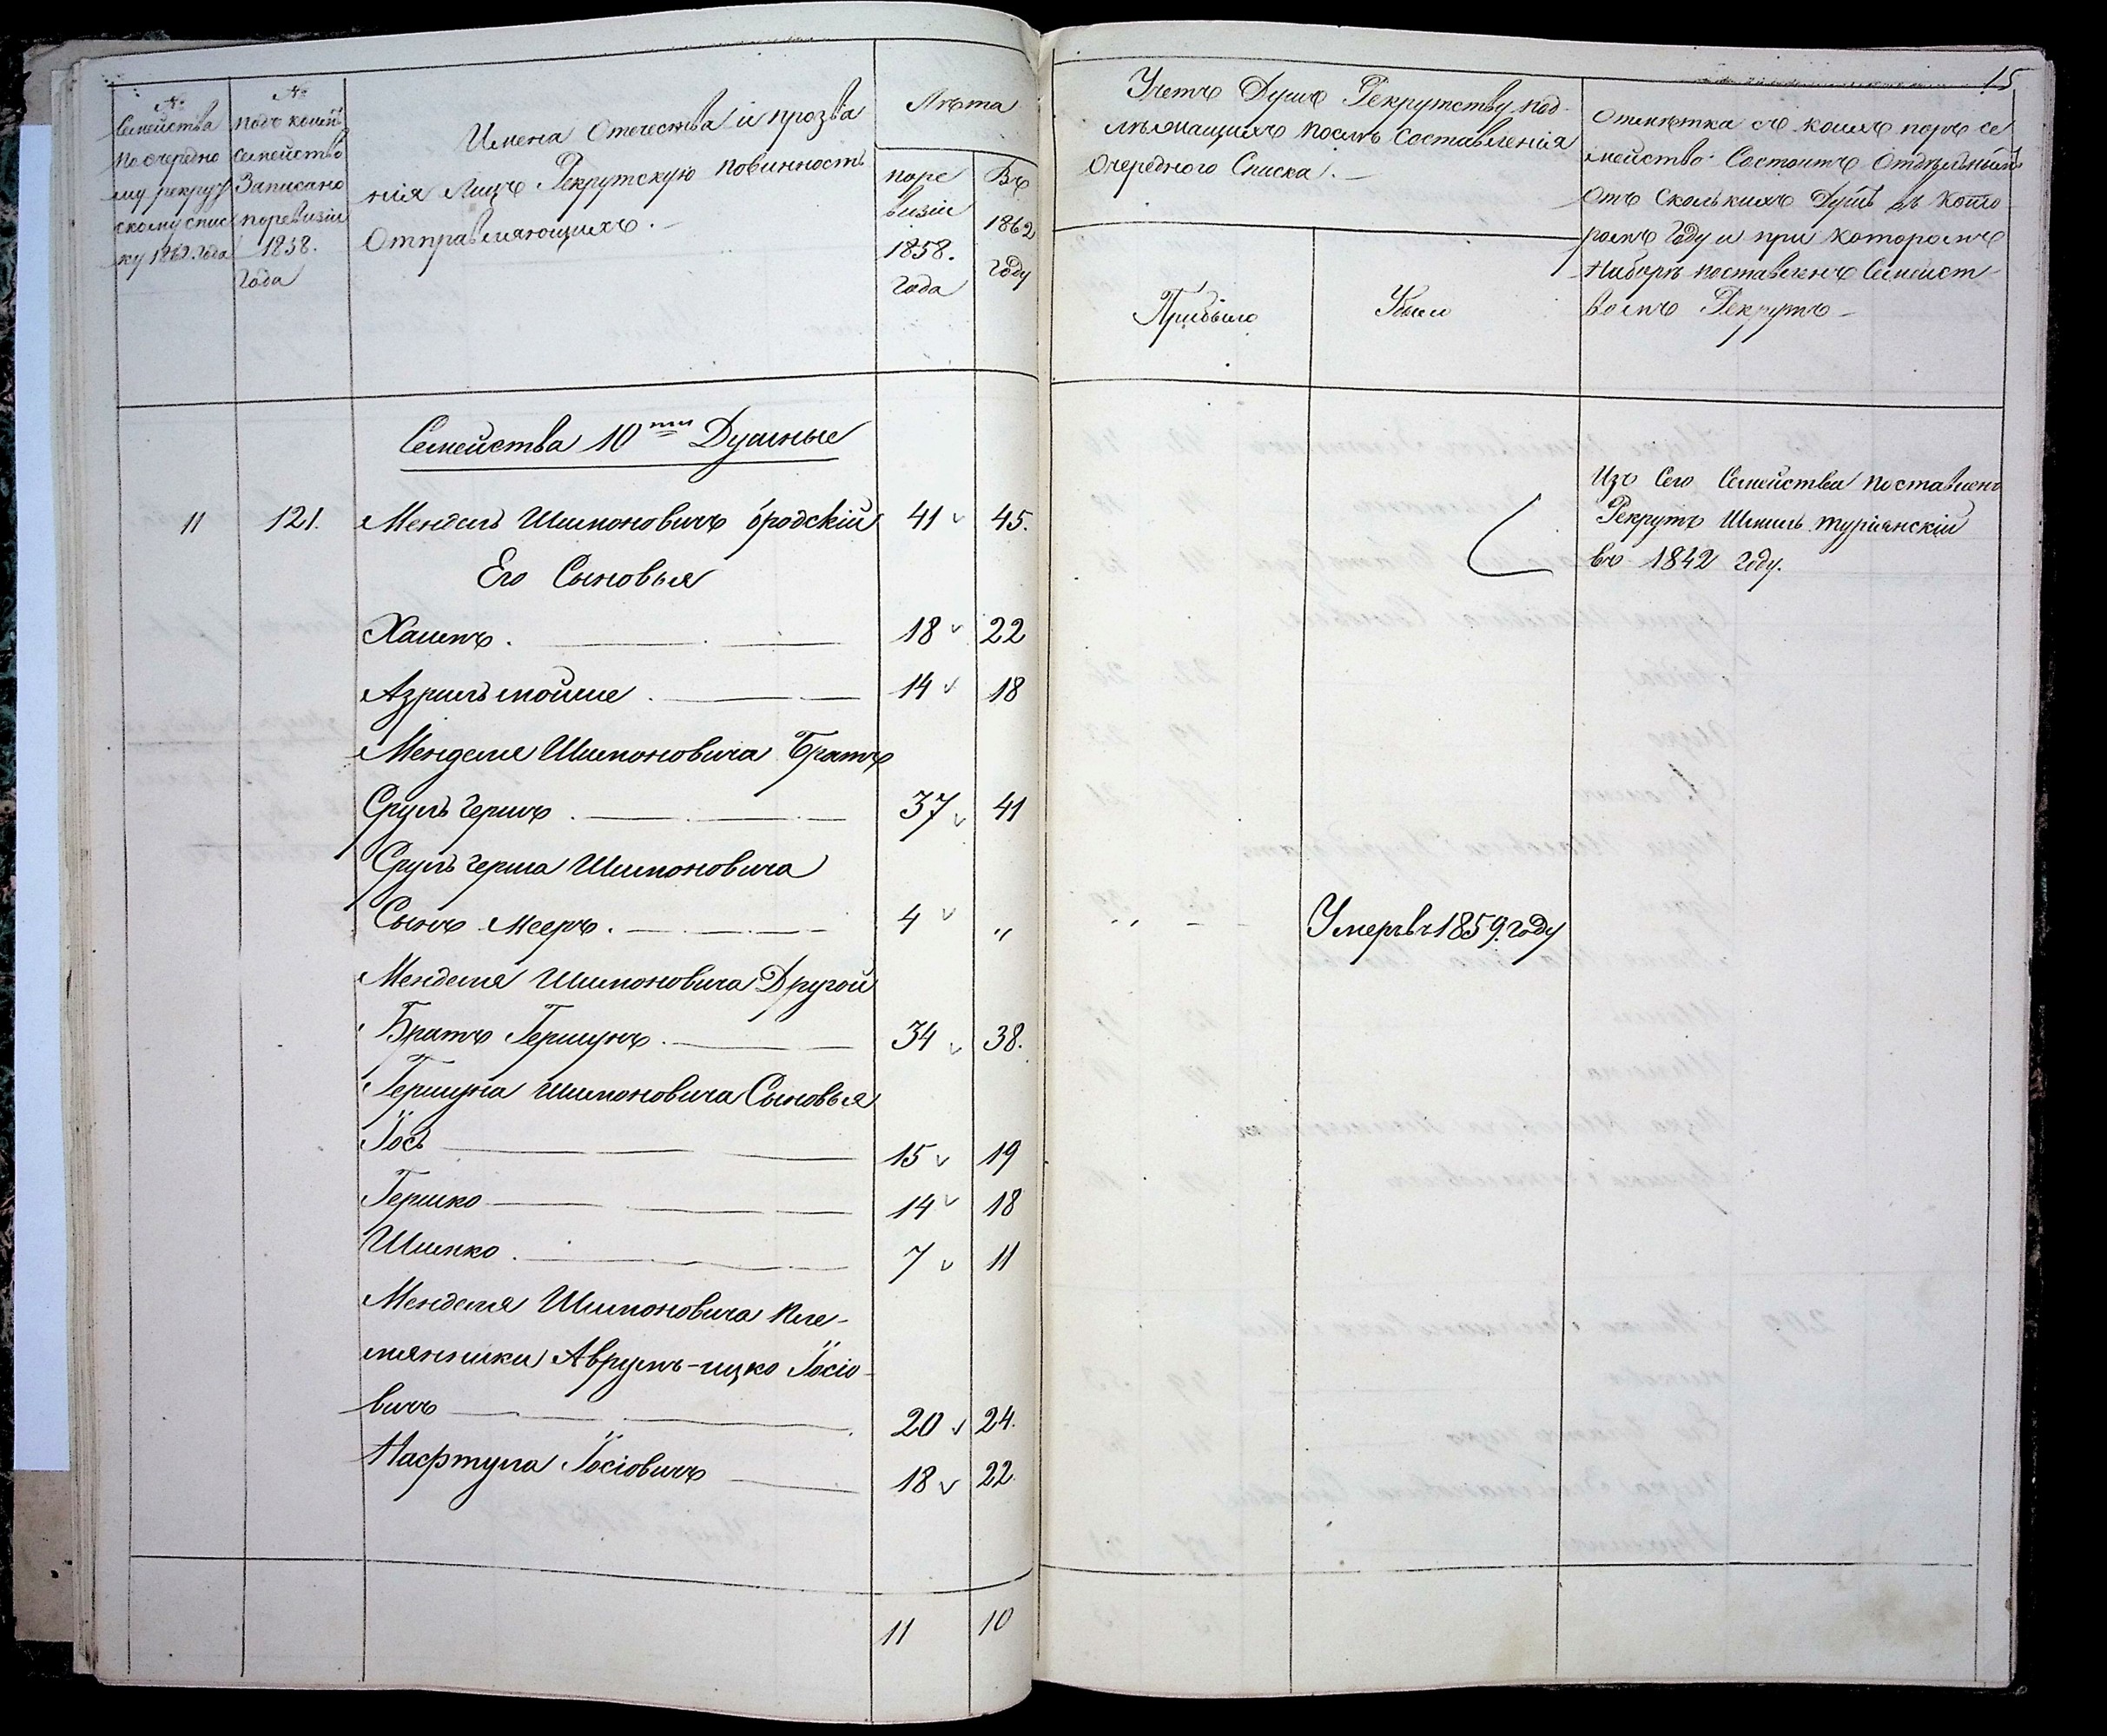 №
Семейства
по очередно
му рекрут
скому спис
ку 1862. года
№
подъ коимъ
семейство
записано
по ревизіи
1858.
года
Имена Отечества и прозва
нія Лицъ Рекрутскую повинность
Отправляющихъ. —
Лѣта
по ре
визіи
1858.
года
Въ
1862
году
Семейства 10ти Душные
11 121. Мендель Шимоновичъ бродскій 41 45.
Его Сыновья
Хаимъ. 18 22
Азриль мойше 14 18
Менделя Шимоновича Братъ
Сруль гершъ 37 41
Сруль герша Шимоновича
Сынъ Мееръ. 4 „
Менделя Шимоновича Другой
Братъ Гершунъ. 34 38.
Гершуна Шимоновича Сыновья
Іось 15 19
Гершко 14 18
Шимко. 7 11
Менделя Шимоновича пле-
мянники Аврумъ-ицко Іосіо-
вичъ 20 24.
Нафтула Іосіовичъ 18 22
11 10
15
Учетъ Душъ Рекрутству под-
лѣжащихъ послѣ Составленія
Очередного Списка. —
Прибыло
Убыло
Отмѣтка съ коихъ поръ се
мейство Состоитъ Отдѣльнымъ
Отъ Сколькихъ Душъ въ Кото
ромъ Году и при Которомъ
Наборѣ поставленъ Семейст-
вомъ Рекрутъ —
Изъ Сего Семейства поставленъ
Рекрутъ Шмиль туріянскій
въ 1842 году.
„ — Умеръ въ 1859. году